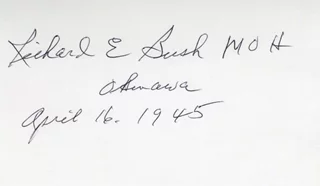 Richard E Bush MOH
Okinawa
April 16. 1945